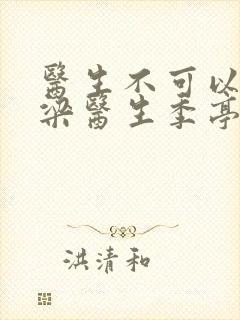 醫生不可以
梁醫生季亭
洪清和